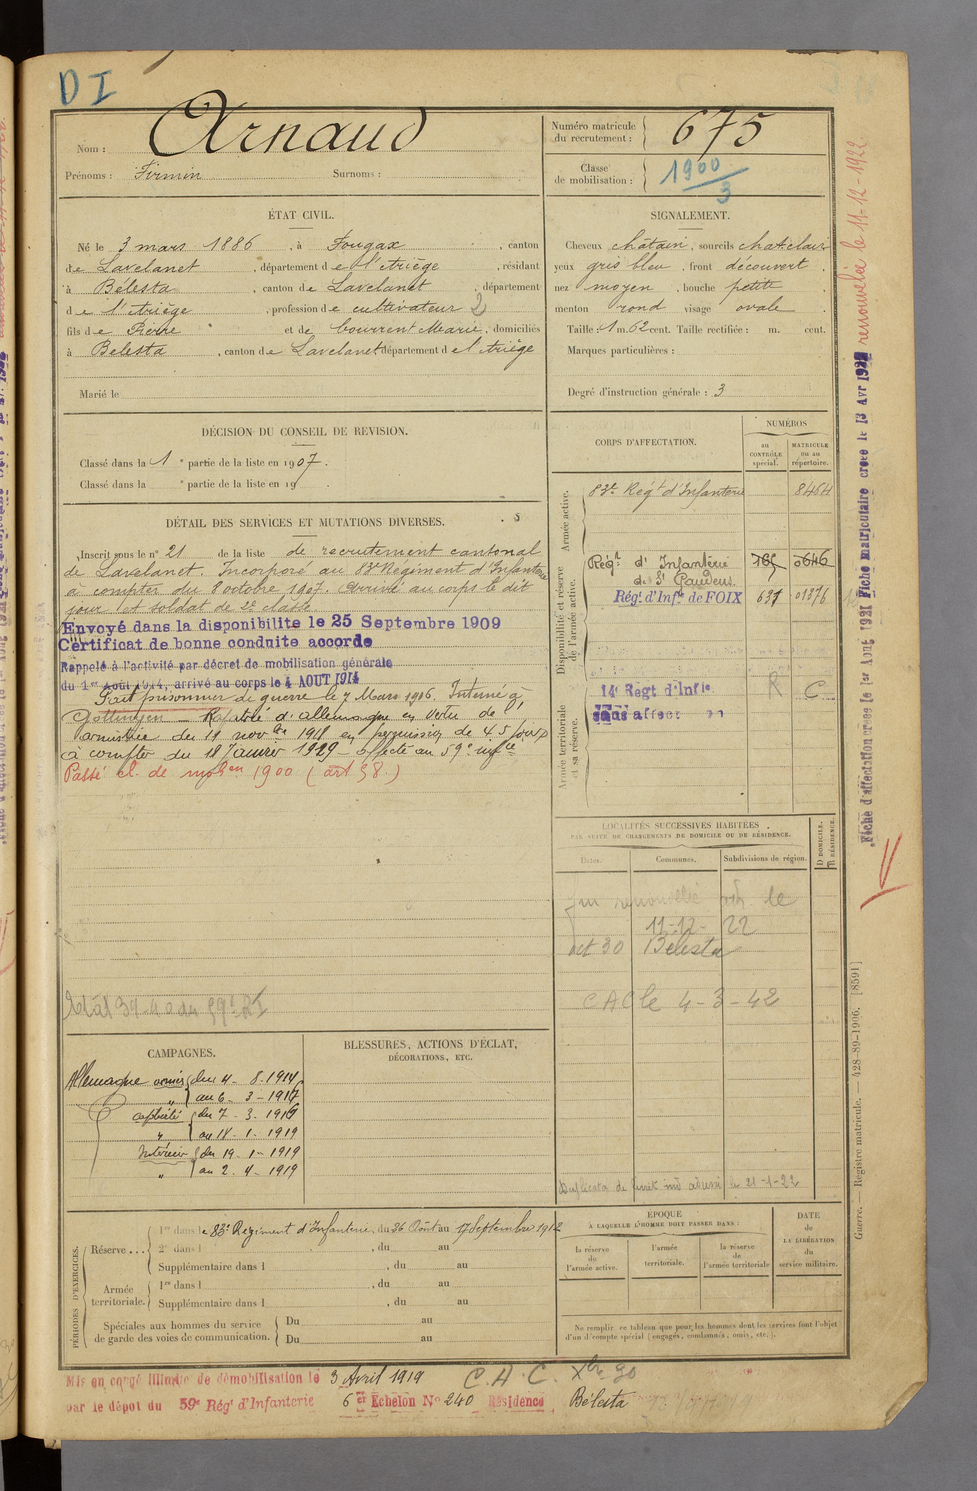 D I
Nom : Arnaud
Prénoms : Firmin Surnoms :
Numéro matricule du recrutement : 675
Classe de mobilisation : 1900 / 3
ÉTAT CIVIL.
Né le 3 mars 1886, à Fougax, canton
de Lavelanet, département de l'Ariège, résidant
à Bélesta, canton de Lavelanet, département
de l'Ariège, profession de cultivateur 2
fils de Pierre et de Courrent Marie, domiciliés
à Belesta, canton de Lavelanet département de l'Ariège
Marié le
SIGNALEMENT.
Cheveux châtain, sourcils chat. clairs
yeux gris bleu, front découvert
nez moyen, bouche petite
menton rond visage ovale
Taille : 1 m. 62 cent. Taille rectifiée : m. cent.
Marques particulières :
Degré d'instruction générale : 3
DÉCISION DU CONSEIL DE REVISION.
Classé dans la 1e partie de la liste en 1907.
Classé dans la e partie de la liste en 19 .
DÉTAIL DES SERVICES ET MUTATIONS DIVERSES.
Inscrit sous le n° 21 de la liste de recrutement cantonal
de Lavelanet. Incorporé au 83e Régiment d'Infanterie
à compter du 8 octobre 1907. Arrivé au corps le dit
jour 1 et soldat de 2e classe.
Envoyé dans la disponibilite le 25 Septembre 1909
Certificat de bonne conduite accorde
Rappelé à l'activité par décret de mobilisation générale
du 1er Août 1914, arrivé au corps le 4 AOUT 1914
Fait prisonnier de guerre le 7 Mars 1916. Interné à
Göttingen — Rapatrié d'allemagne en vertu de
l'armistice du 11 novbre 1918 en permission de 45 jours
à compter du 18 Janvier 1919 affecté au 59e infie
Passé cl. de mobon 1900 (art 58.)
59e RI
CORPS D'AFFECTATION.
NUMÉROS
au CONTRÔLE spécial.
MATRICULE ou au répertoire.
Armée active.
83e Régt d'Infanterie 8464
Disponibilité et réserve de l'armée active.
Régt d'Infanterie 165 0646
de St Gaudens.
Régt d'Infie de FOIX 631 01376
Armée territoriale et sa réserve.
14e Régt d'Infie R C
sans affect on
LOCALITÉS SUCCESSIVES HABITÉES
PAR SUITE DE CHANGEMENTS DE DOMICILE OU DE RÉSIDENCE.
Dates. Communes. Subdivisions de région. D DOMICILE. R RÉSIDENCE.
renouvelé le
11-12-22
oct 30 Bélesta
CAC le 4-3-42
Duplicata de le 21-1-22
CAMPAGNES.
Allemagne armées du 4-8-1914
" au 6-3-1916
captivité du 7-3-1916
" au 18-1-1919
Intérieur du 19-1-1919
" au 2-4-1919
BLESSURES, ACTIONS D'ÉCLAT,
DÉCORATIONS, ETC.
PÉRIODES D'EXERCICES.
Réserve...
1re dans le 83e Régiment d'Infanterie, du 26 Août au 17 Septembre 1912
2e dans l , du au
Supplémentaire dans l , du au
Armée territoriale.
1re dans l , du au
Supplémentaire dans l , du au
Spéciales aux hommes du service de garde des voies de communication.
Du au
Du au
ÉPOQUE
À LAQUELLE L'HOMME DOIT PASSER DANS :
la réserve de l'armée active.
l'armée territoriale.
la réserve de l'armée territoriale
DATE de LA LIBÉRATION du service militaire.
Ne remplir ce tableau que pour les hommes dont les services font l'objet
d'un décompte spécial (engagés, condamnés, omis, etc.).
Mis en congé illimité de démobilisation le 3 Avril 1919 C.A.C.
par le dépot du 59e Régt d'Infanterie 6 er Echelon No 240 Résidence Bélesta
Fiche d'affectation creee le 1er Aout 1921 Fiche matriculaire creee le 13 Avr 1922 renouvelé le 11-12-1922
Guerre. — Registre matricule. — 428-89-1906. [8591]